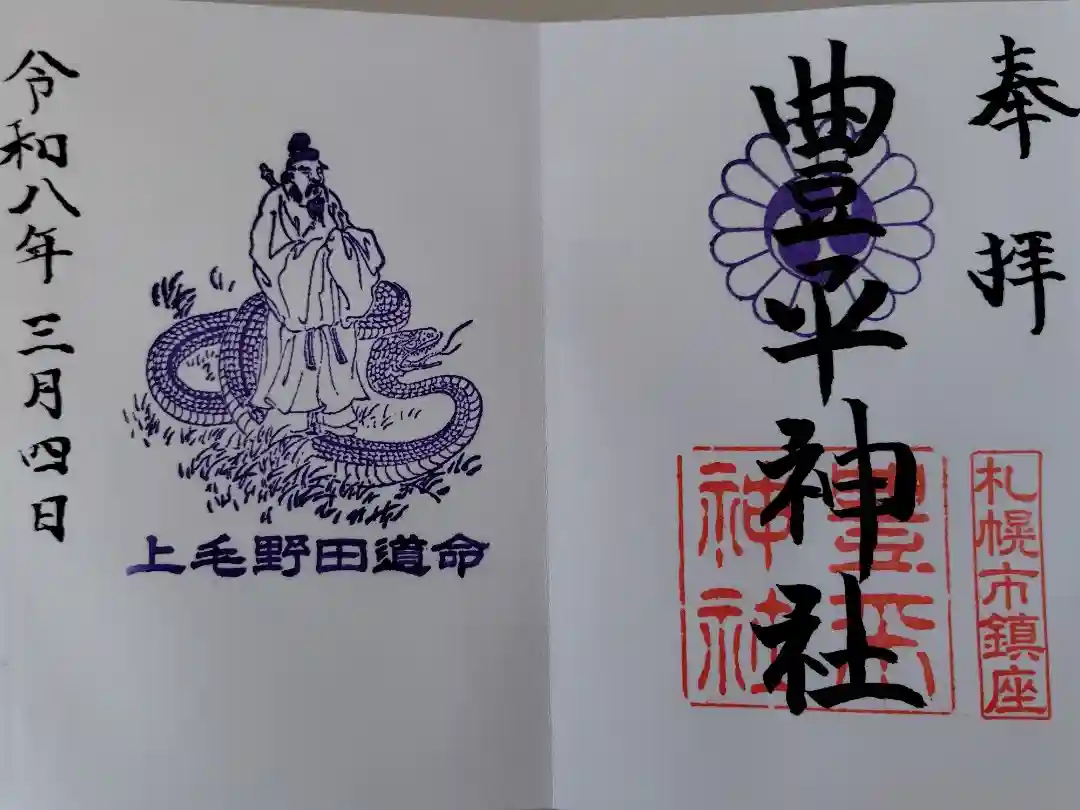 奉拝
豊平神社
豊平神社
札幌市鎮座
上毛野田道命
令和八年三月四日